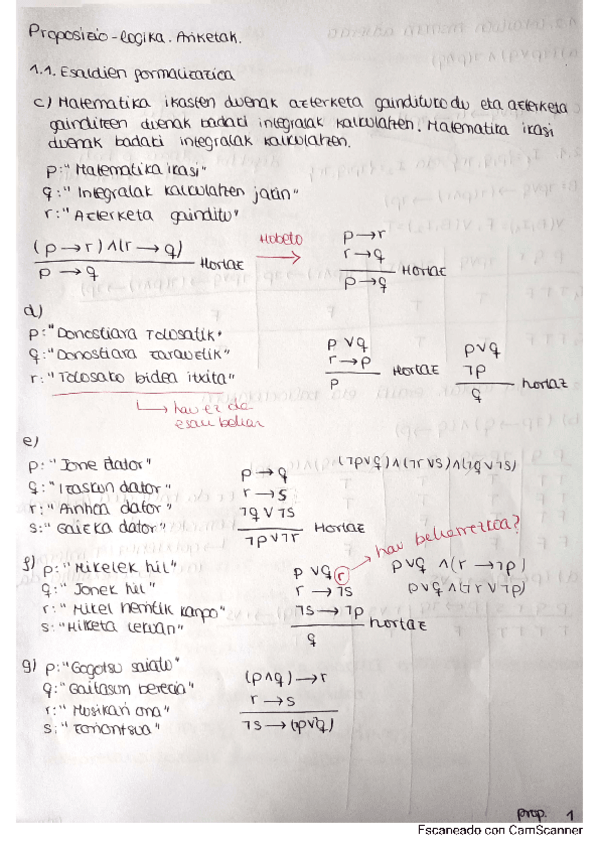 Proposizio-logika. Ariketak.
1.1. Esaldien formalizazioa
c) Matematika ikasten duenak azterketa gaindituko du eta azterketa
gainditzen duenak badaki integralak kalkulatzen. Matematika ikasi
duenak badaki integralak kalkulatzen.
p: "Matematika ikasi"
q: "Integralak kalkulatzen jakin"
r: "Azterketa gainditu"
(p → r) ∧ (r → q)
p → q
Hortaz
Hobeto
p → r
r → q
p → q
Hortaz
d)
p: "Donostiara Tolosatik"
q: "Donostiara Zarauztik"
r: "Tolosako bidea itxita"
hau ez da
esan behar
p ∨ q
r → p
p
Hortaz
p ∨ q
¬p
q
hortaz
e)
p: "Jone dator"
q: "Izaskun dator"
r: "Ainhoa dator"
s: "Gaizka dator"
p → q
r → s
¬q ∨ ¬s
¬p ∨ ¬r
Hortaz
(¬p∨q)∧(¬r∨s)∧(¬q∨¬s)
f) p: "Mikelek hil"
q: "Jonek hil"
r: "Mikel hemtik kanpo"
s: "Hilketa lekuan"
p ∨ q r
r → ¬s
¬s → ¬p
q
hortaz
hau beharrezkoa?
p∨q ∧ (r → ¬p)
p∨q ∧ (¬r ∨ ¬p)
g) p: "Gogotsu saiatu"
q: "Gaitasun berezia"
r: "Musikari ona"
s: "zoriontsua"
(p∧q) → r
r → s
¬s → (p∨q)
prop. 1
Escaneado con CamScanner